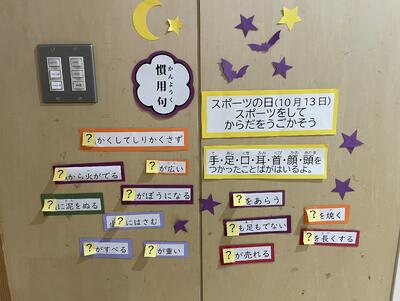 慣用句
かんようく
スポーツの日(10月13日)
スポーツをして
からだをうごかそう
手・足・口・耳・首・顔・頭を
つかったことばがはいるよ。
?かくしてしりかくさず
?が広い
?から火がでる
?がぼうになる
?に泥をぬる
?にはさむ
?がすべる
?が重い
?をあらう
?も足もでない
?が売れる
?を焼く
?を長くする